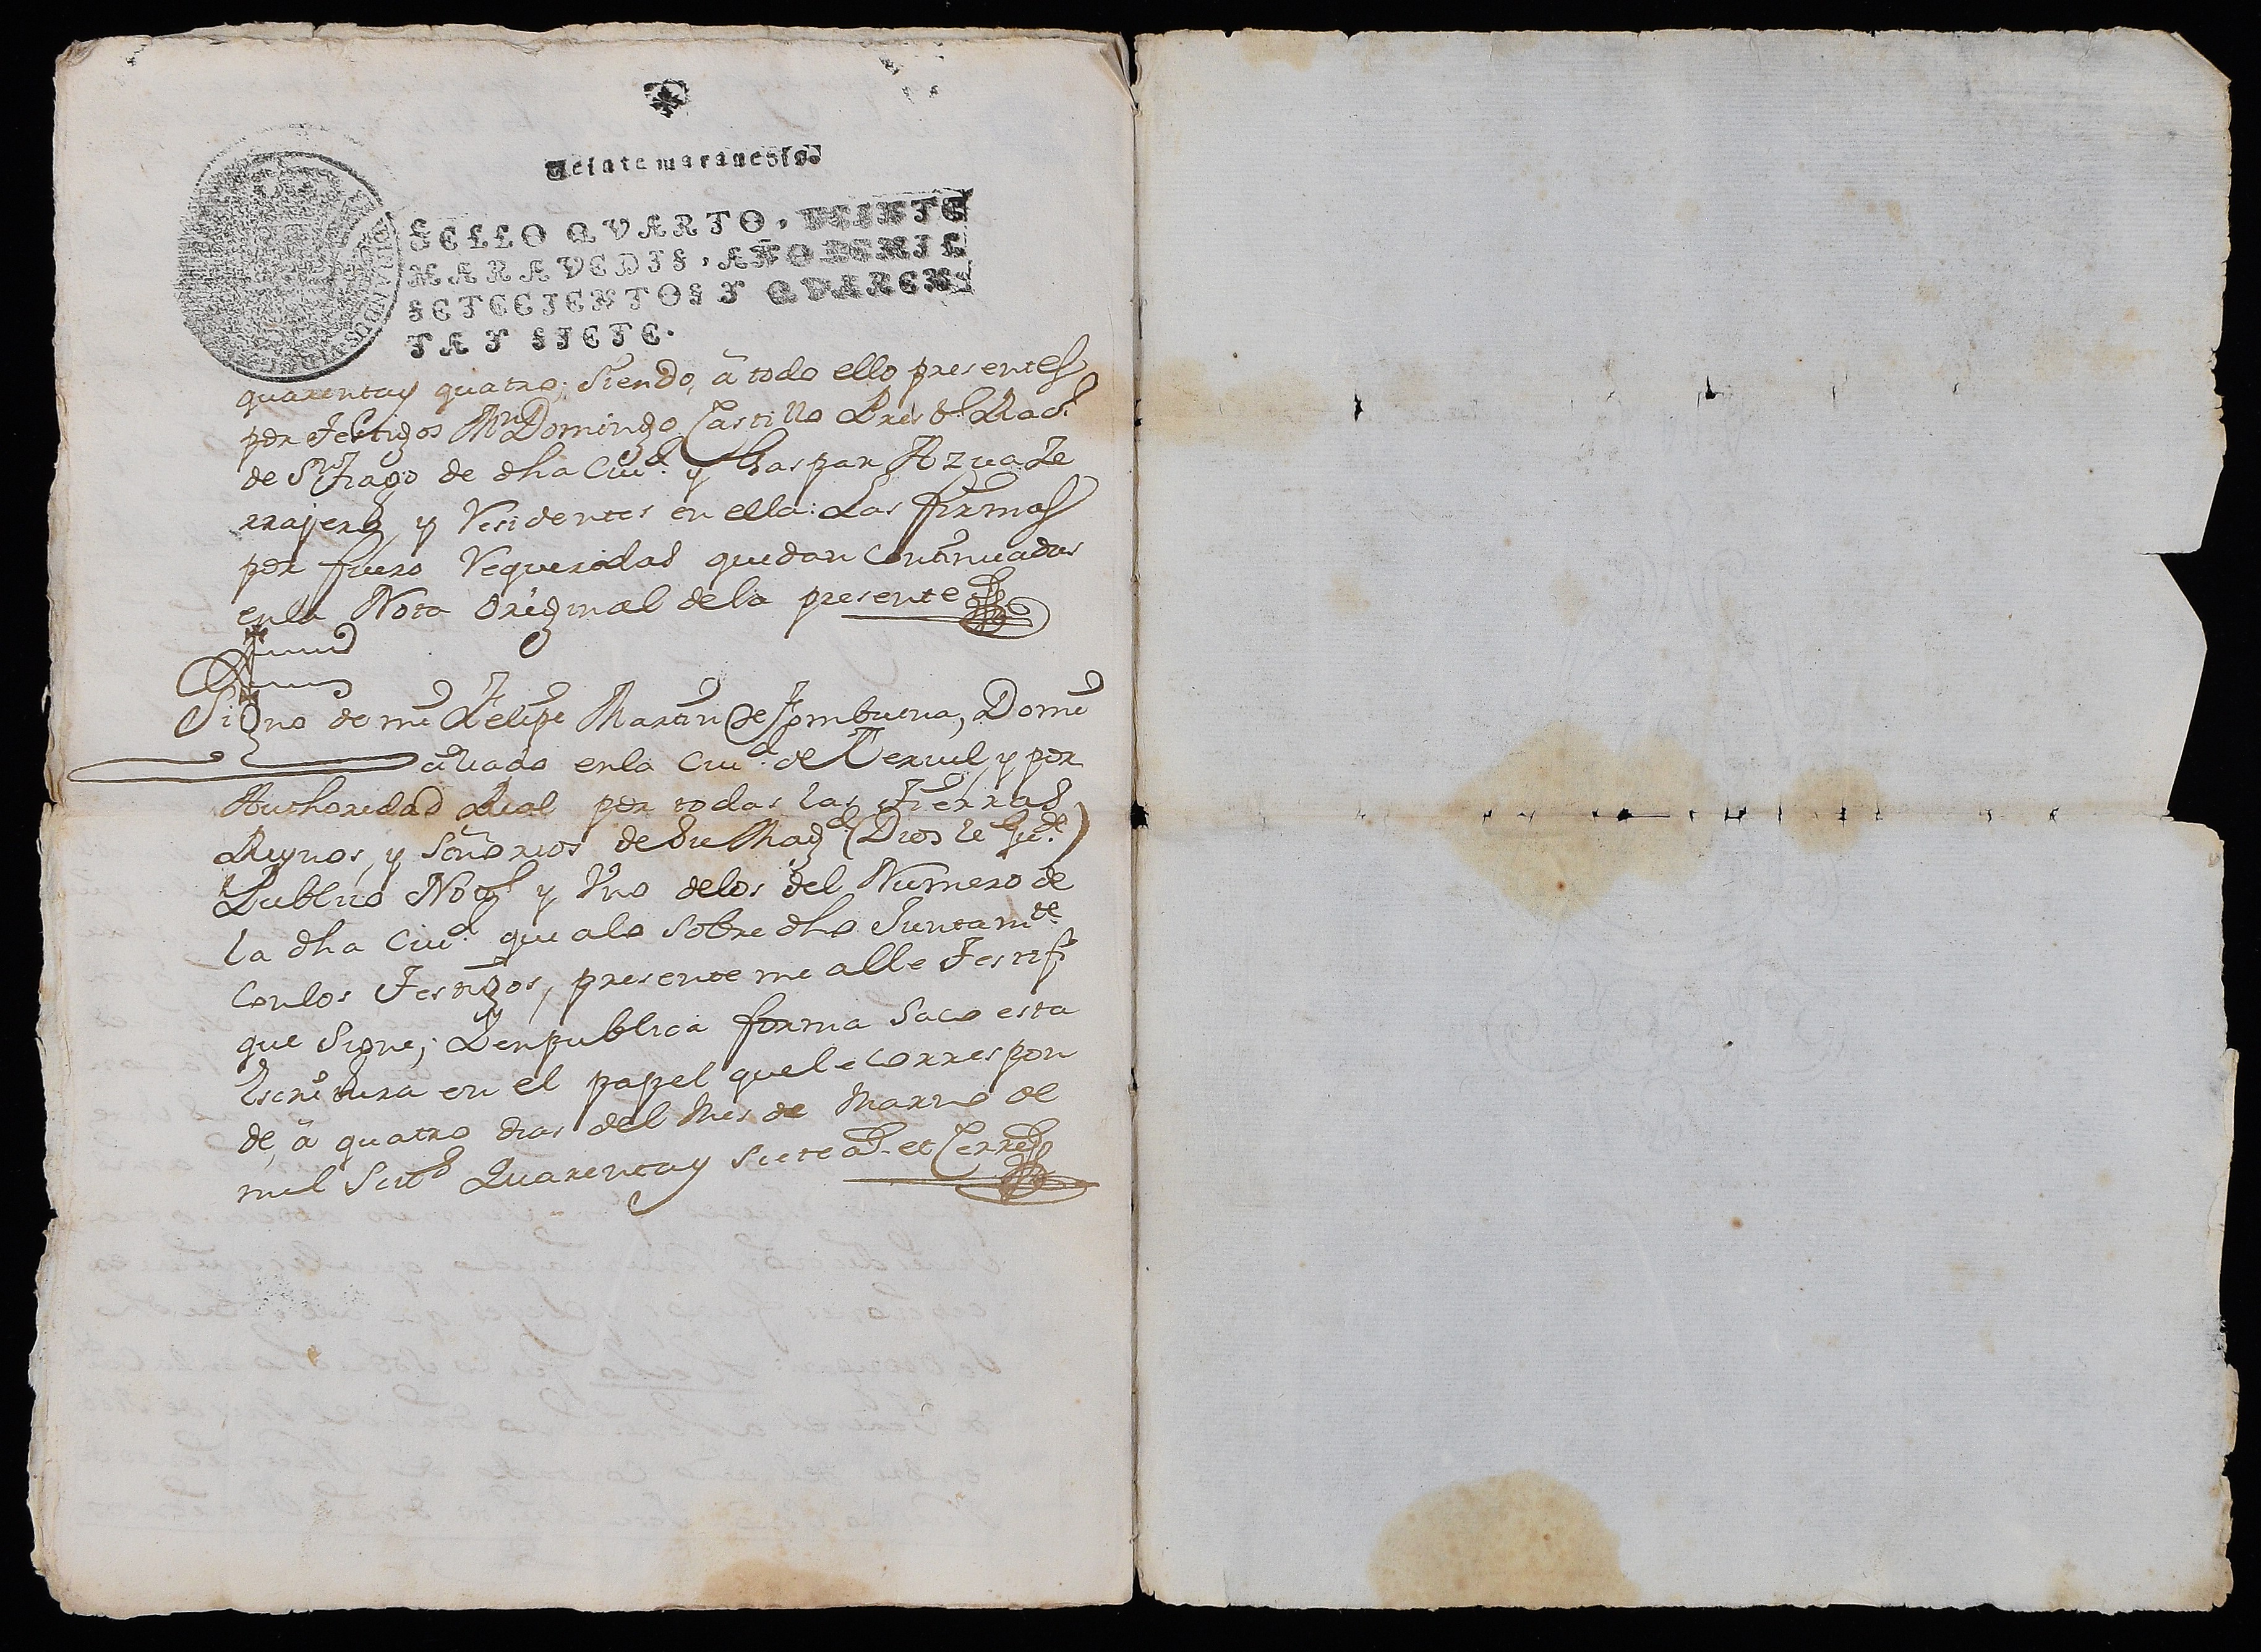 Veinte maravedis.
SELLO QVARTO, VEINTE
MARAVEDIS, AÑO DE MIL
SETECIENTOS Y QVAREN
TA Y SIETE.
quarentay quatro; Siendo, â todo ello presentes
por Testigos Mn Domingo Castillo Presb.º Rac.l
de Sn Tiago de dha Ciud. y Gaspar Azua Ze
rrajero, y Residentes en ella: Las firmas
por fuero Requeridas quedan Continuadas
enla Nota Original dela presente
Signo de mi Phelipe Martin de Jombuena, Domi
ciliado enla Ciud. de Teruel, y por
Authoridad Real por todas las Tierras
Reynos, y Señorios de Su Magd. (Dios le Gude.)
Publico Notº y Vno delos del Numero de
la dha Ciud. que alo Sobre dho Juntamte.
Conlos Testigos, presente me alle Testifº
que Signe; Y en publica forma Saco esta
Escritura en el papel quele correspon
de, â quatro dias del Mes de Marzo de
mil Setts Quarentay Siete as. et Cerre